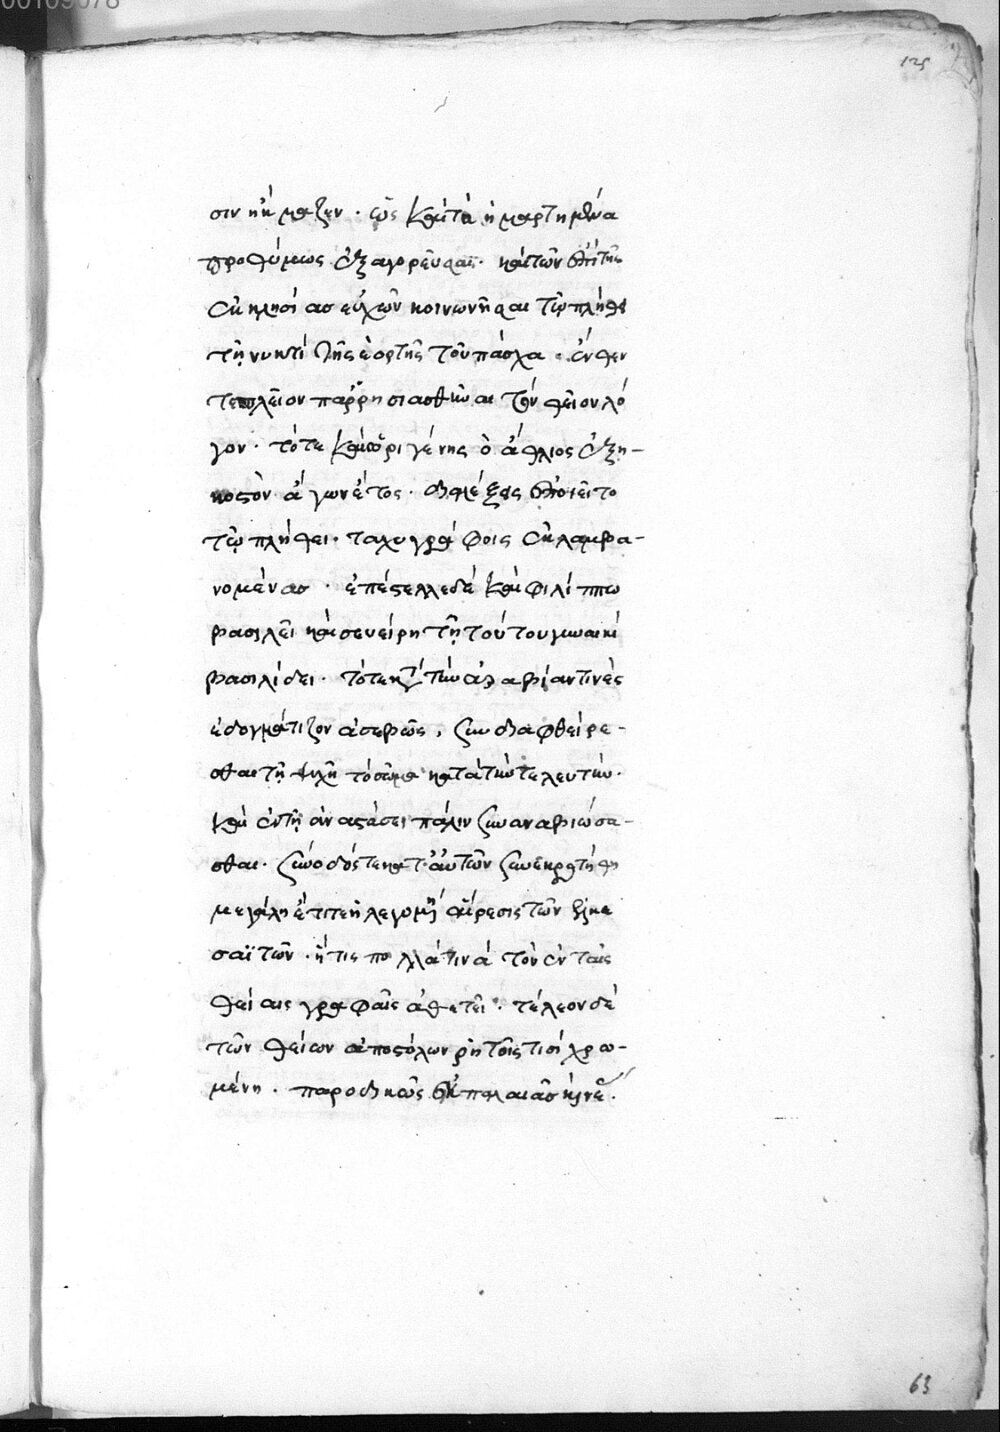 00109078
125
σιν ἤκμαζεν · ὡς καὶ τὰ ἡμαρτημένα
προθύμως ἐξαγορεῦσαι · καὶ τῶν ἐπὶ τῆς
ἐκκλησίας εὐχῶν κοινωνῆσαι τῷ πλήθει
τῇ νυκτὶ τῆς ἑορτῆς τοῦ πάσχα · ἔνθεν
τε πλεῖον παρρησιασθῆναι τὸν θεῖον λό
γον · τότε καὶ ὠριγένης ὁ ἄθλιος ἑξη-
κοστὸν ἄγων ἔτος · διαλέξεις ἐποιεῖτο
τῷ πλήθει · ταχυγράφοις ἐκλαμβα-
νομένας · ἐπέστελλε δὲ καὶ φιλίππω
βασιλεῖ καὶ σευείρῃ τῇ τούτου γυναικὶ
βασιλίδει · τότε κατὰ τὴν ἀραβίαν τινὲς
ἐδογμάτιζον ἀσεβῶς, συνδιαφθείρε-
σθαι τῇ ψυχῇ τὸ σῶμα κατὰ τὴν τελευτήν ·
καὶ ἐν τῇ ἀναστάσει πάλιν συναναβιώσα-
σθαι · σύνοδός τε κατ' αὐτῶν συνεκροτήθη
μεγάλη ἔτι τε ἡ λεγομένη αἵρεσις τῶν ἑλκε
σαϊτῶν · ἥτις πολλά τινα τῶν ἐν ταῖς
θείαις γραφαῖς ἀθετεῖ · τέλεον δὲ
τῶν θείων ἀποστόλων ῥητοῖς τισὶ χρω-
μένη · παροδικῶς ἐκ παλαιᾶς καὶ νέας
63